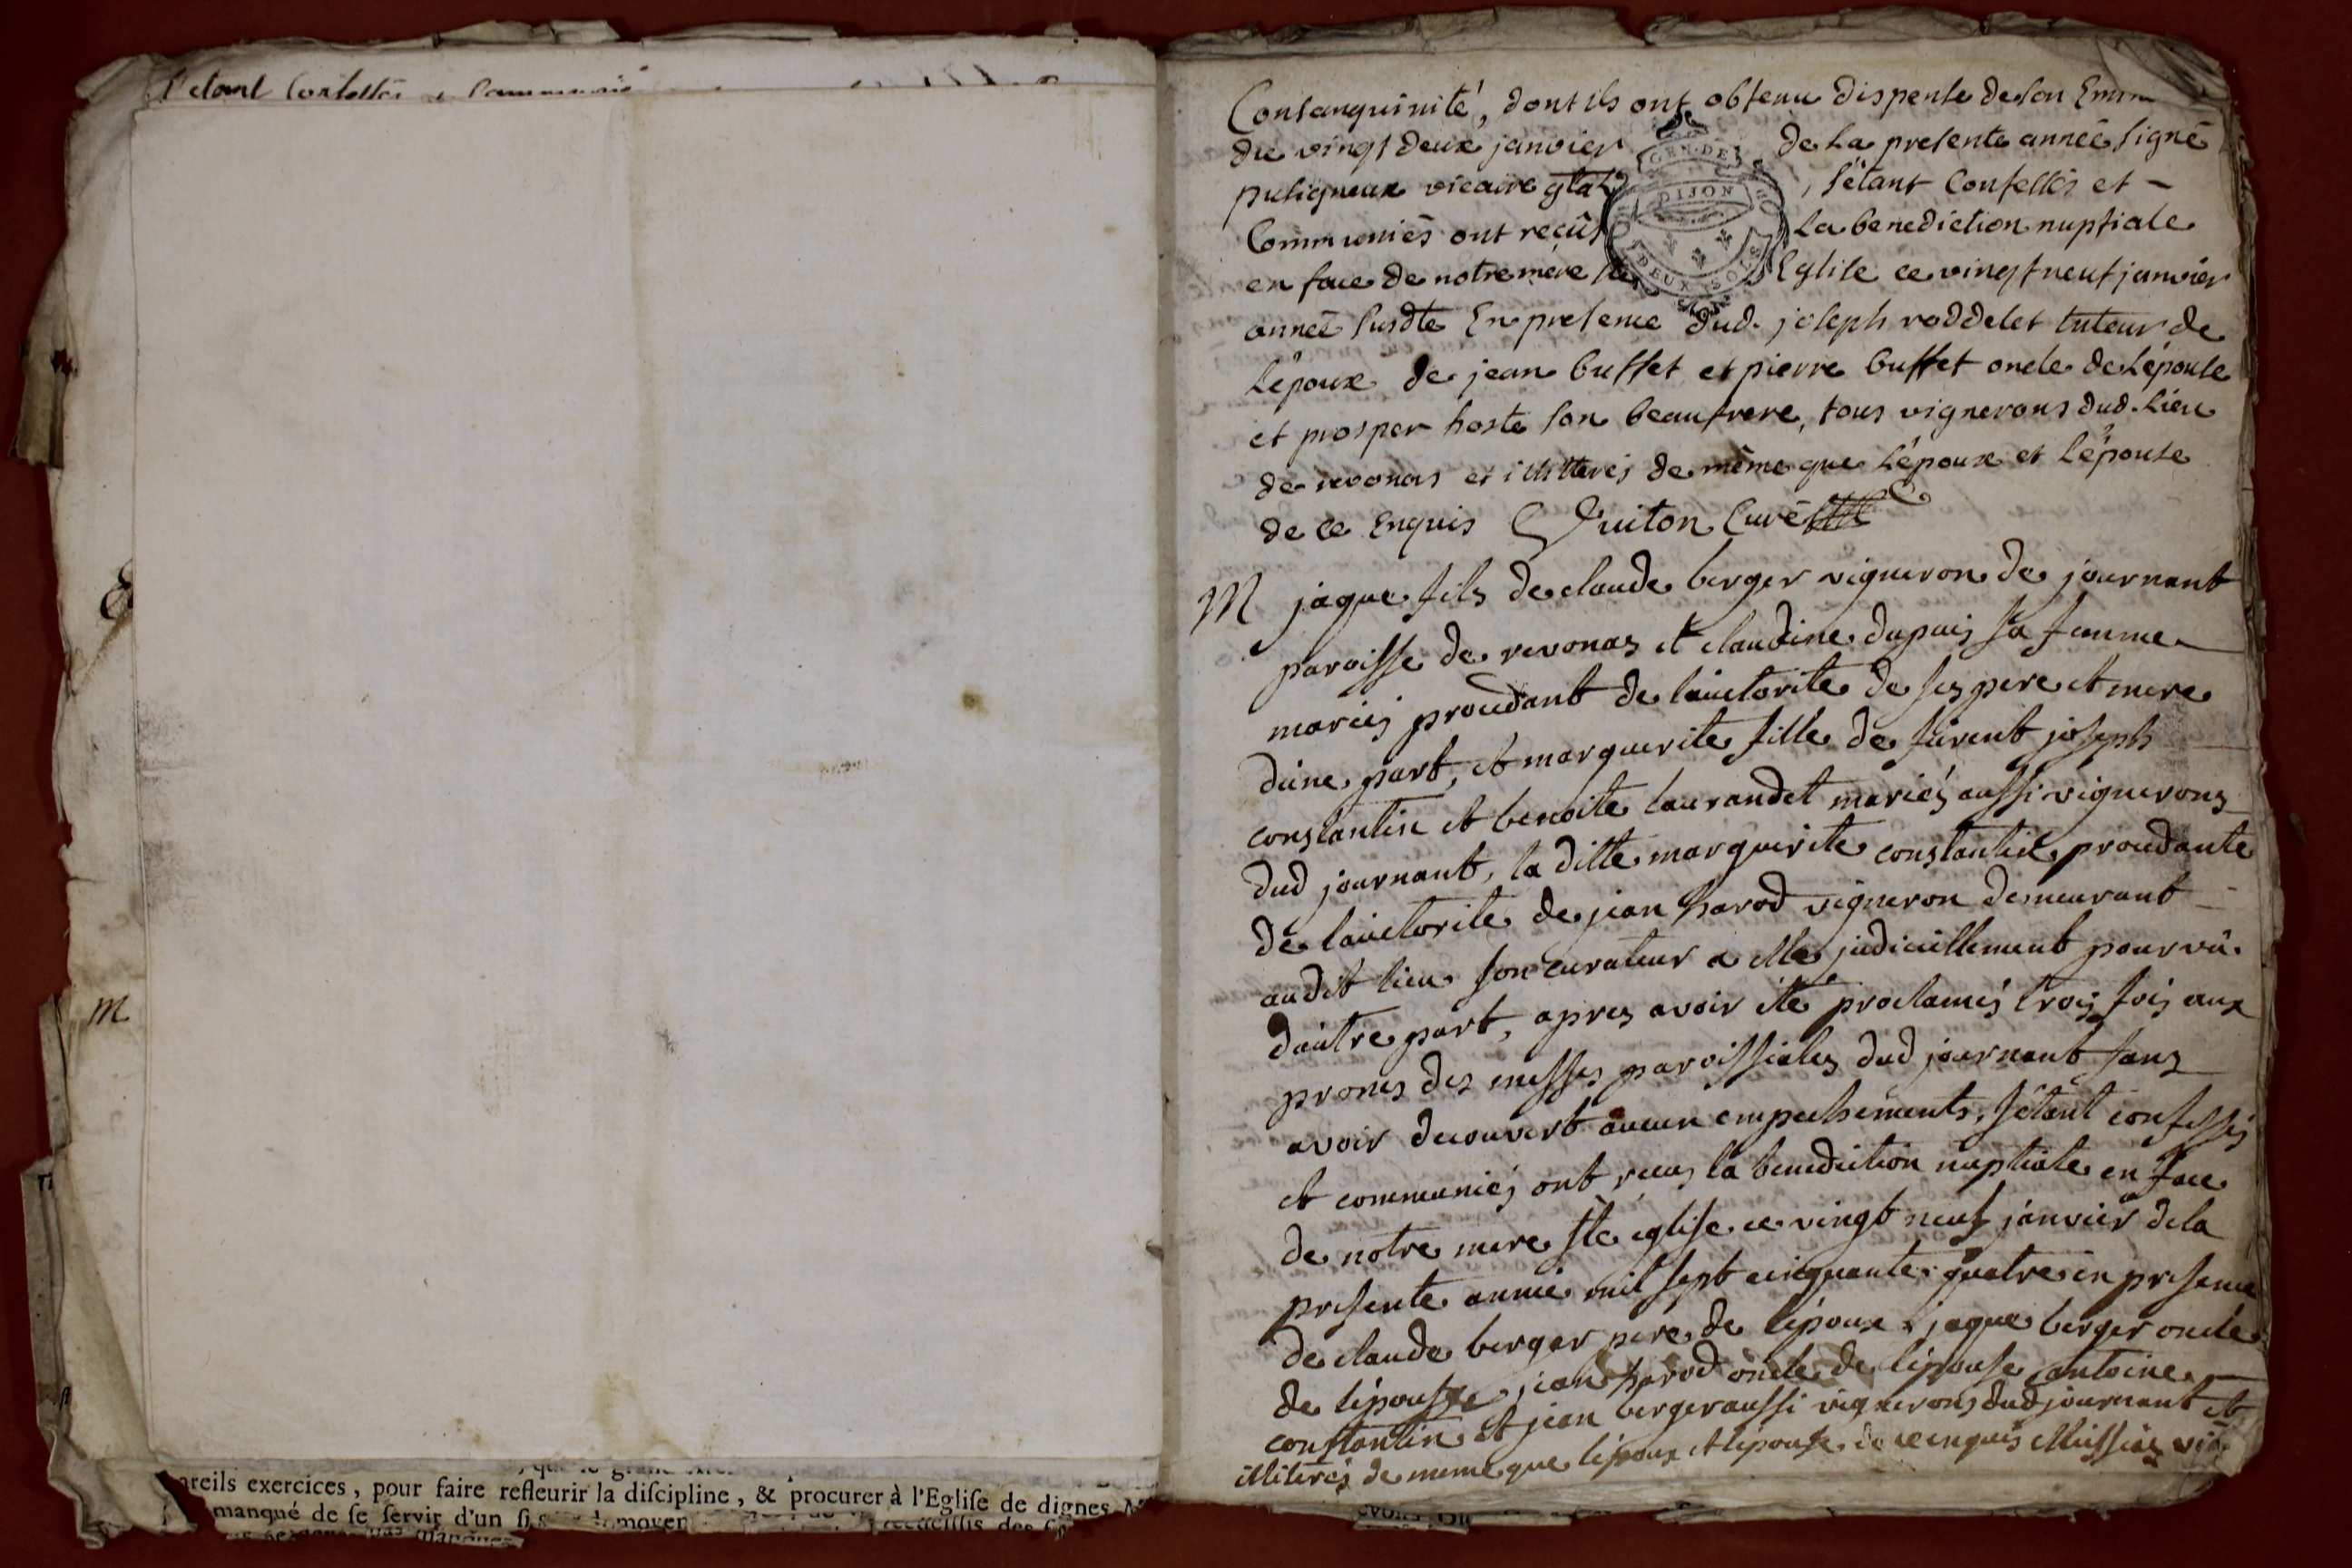 s'etant confessés
M
areils exercices, pour faire refleurir la discipline, & procurer à l'Eglise de dignes
manqué de se servir d'un
Consanguinité, dont ils ont obtenu dispense de son Emin
du vingt deux janvier de La presente année signé
pusigneux vicaire gral, s'étant Confessés et -
Communiés ont recûs La benediction nuptiale
en face de notre mere ste Eglise ce vingt neuf janvier
année susdte En presence dud. joseph roddelet tuteur de
L'epoux de jean buffet et pierre buffet oncle de L'épouse
et prosper hoste son beaufrere, tous vignerons dud. Lieu
de revonas et illitterés de même que L'époux et L'épouse
de ce Enquis Guiton Curé
GEN. DE
DIJON
DEUX SOLS
M jaque fils de claude berger vigneron de journant
paroisse de revonas et claudine dupuis sa femme
mariés procedant de lauctorite de ses pere et mere
dune part, et marguerite fille de furent joseph
constantin et benoite laurandet mariés aussi vignerons
dud journant, la ditte marguerite constantin procedante
de lauctorite de jean harod vigneron demeurant
audit lieu son curateur a elle judiciellement pourvû
dautre part, apres avoir eté proclamés trois fois aux
prones des messes paroissiales dud journant sans
avoir decouvert aucun empechements, sétant confessés
et communiés ont reçus la benediction nuptiale en face
de notre mere ste eglise ce vingt neuf janvier dela
presente année mil sept cinquante quatre en presence
de claude berger pere de lépoux jaque berger oncle
de lépouse jean harod oncle de lépouse antoine
constantin et jean berger aussi vignerons dud journant et
illiterés de meme que lépoux et lépouse de ce enquis